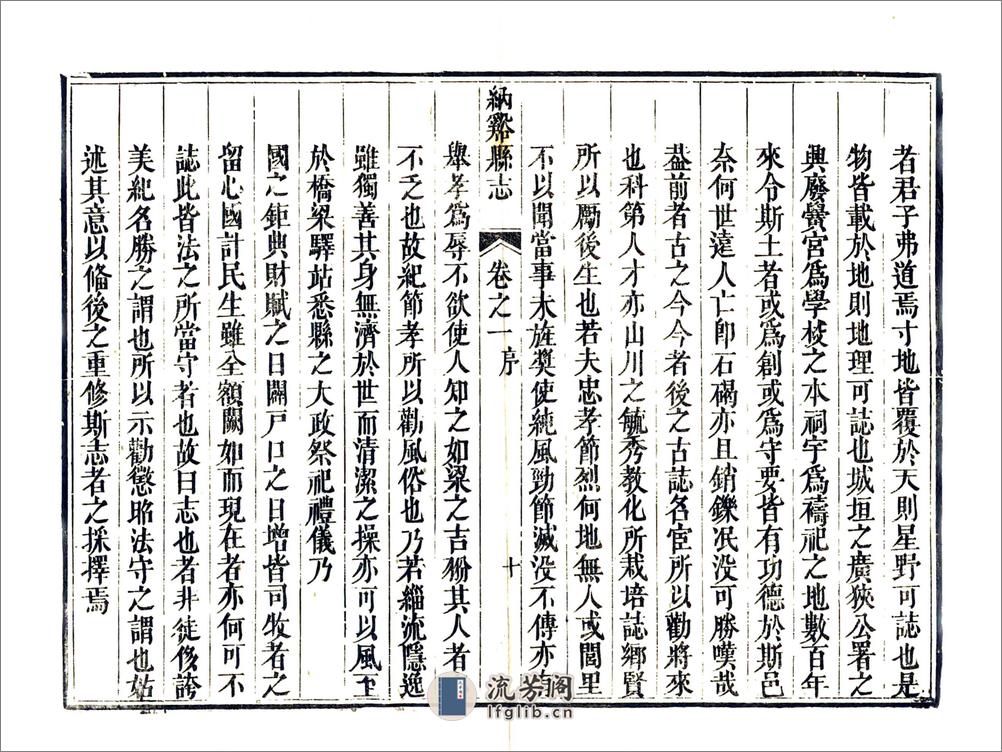 者君子弗道焉寸地皆覆於天則星野可誌也是
物皆載於地則地理可誌也城垣之廣狹公署之
興廢黌宮為學校之本祠宇為禱祀之地數百年
來令斯土者或為創或為守要皆有功德於斯邑
奈何世遠人亡卽石碣亦且銷鑠冺没可勝嘆哉
葢前者古之今今者後之古誌名宦所以勸將來
也科第人才亦山川之毓秀教化所栽培誌鄉賢
所以勵後生也若夫忠孝節烈何地無人或閭里
不以聞當事未旌奬使純風勁節滅没不傳亦
納谿縣志 卷之一 序 十
舉孝為辱不欲使人知之如梁之吉翂其人者
不乏也故紀節孝所以勸風俗也乃若緇流隱逸
雖獨善其身無濟於世而清潔之操亦可以風至
於橋梁驛站悉縣之大政祭祀禮儀乃
國之鉅典財賦之日闢戸口之日增皆司牧者之
留心國計民生雖全額闕如而現在者亦何可不
誌此皆法之所當守者也故曰志也者非徒侈誇
美紀名勝之謂也所以示勸懲昭法守之謂也姑
述其意以俻後之重修斯志者之採擇焉
流芳閣
lfglib.cn